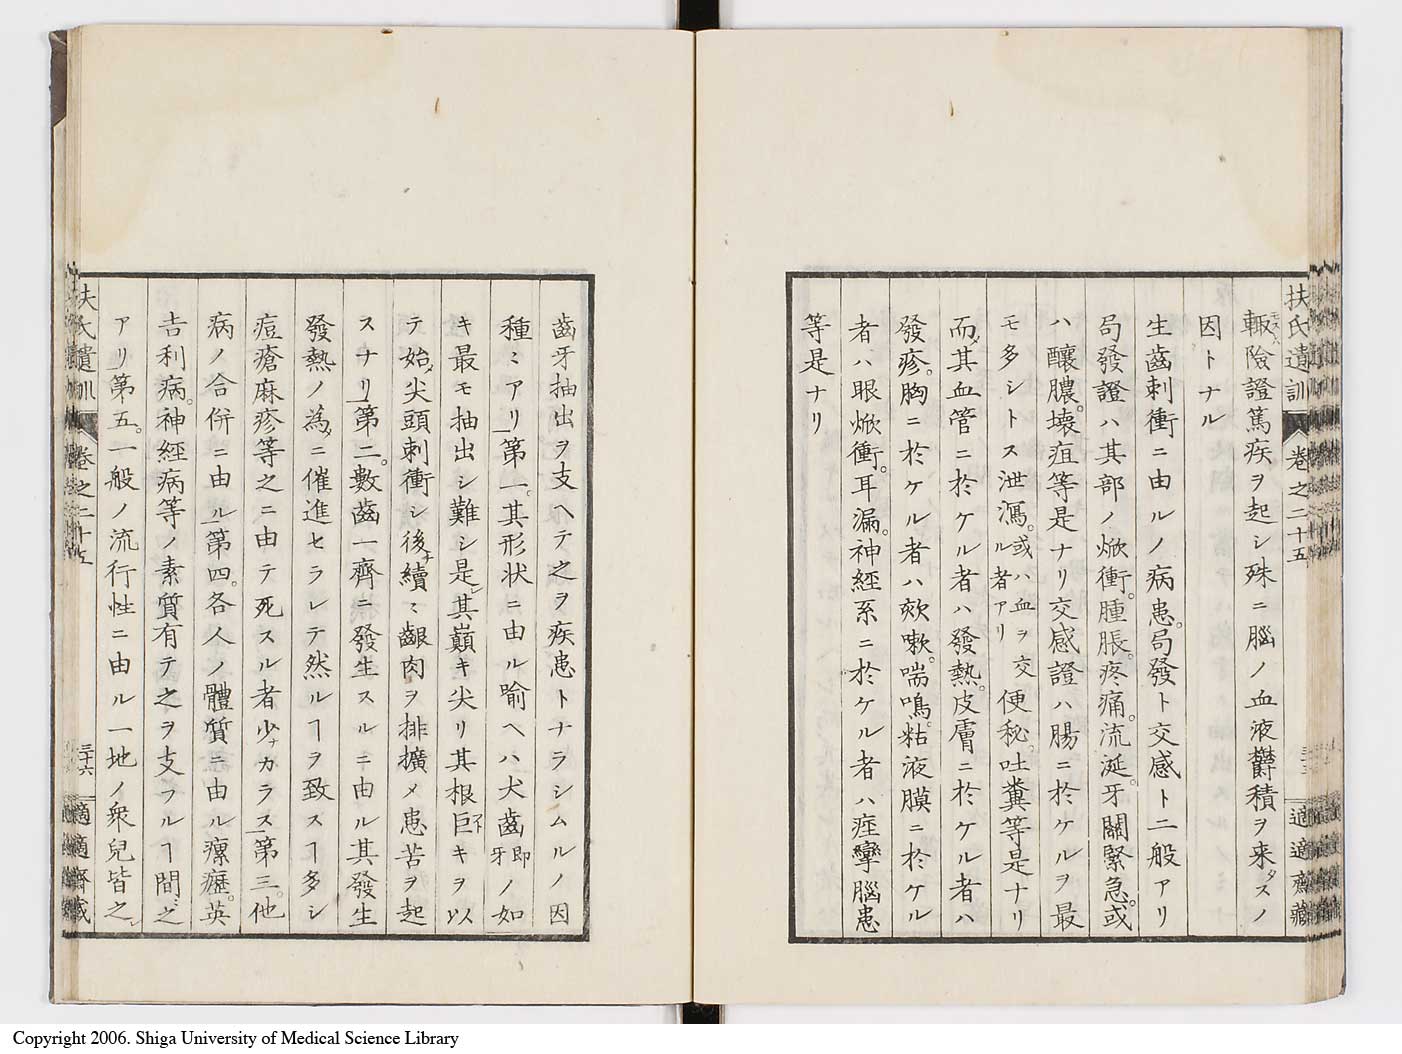 扶氏遺訓 卷之二十五 適適齋藏
輙險證篤疾ヲ起シ殊ニ腦ノ血液欝積ヲ来タスノ
因トナル
生齒刺衝ニ由ルノ病患。局發ト交感ト二般アリ
局發證ハ其部ノ焮衝。腫脹。疼痛。流涎。牙關緊急。或
ハ釀膿。壊疽等是ナリ交感證ハ腸ニ於ケルヲ最
モ多シトス泄瀉。或ハ血ヲ交ル者アリ便秘。吐糞等是ナリ
而〆其血管ニ於ケル者ハ發熱。皮膚ニ於ケル者ハ
發疹。胸ニ於ケル者ハ欬嗽。喘鳴。粘液膜ニ於ケル
者ハ眼焮衝。耳漏。神経系ニ於ケル者ハ痙攣腦患
等是ナリ
齒牙抽出ヲ支ヘテ之ヲ疾患トナラシムルノ因
種〻アリ「第一。其形状ニ由ル喻ヘハ犬齒即牙ノ如
キ最モ抽出シ難シ是レ其巓キ尖リ其根巨トキヲ以
テ始メ尖頭刺衝シ後チ續〻齦肉ヲ排擴メ患苦ヲ起
スナリ「第二。數齒一齊ニ發生スルニ由ル其發生
發熱ノ為メニ催進セラレテ然ルヿヲ致スヿ多シ
痘瘡麻疹等之ニ由テ死スル者少ナカラス「第三。他
病ノ合併ニ由ル「第四。各人ノ體質ニ由ル瘰癧。英
吉利病。神経病等ノ素質有テ之ヲ支フルヿ間〻之
アリ「第五。一般ノ流行性ニ由ル一地ノ衆兒皆之レ
扶氏遺訓 卷之二十五 三十六 適適齋藏
Copyright 2006. Shiga University of Medical Science Library